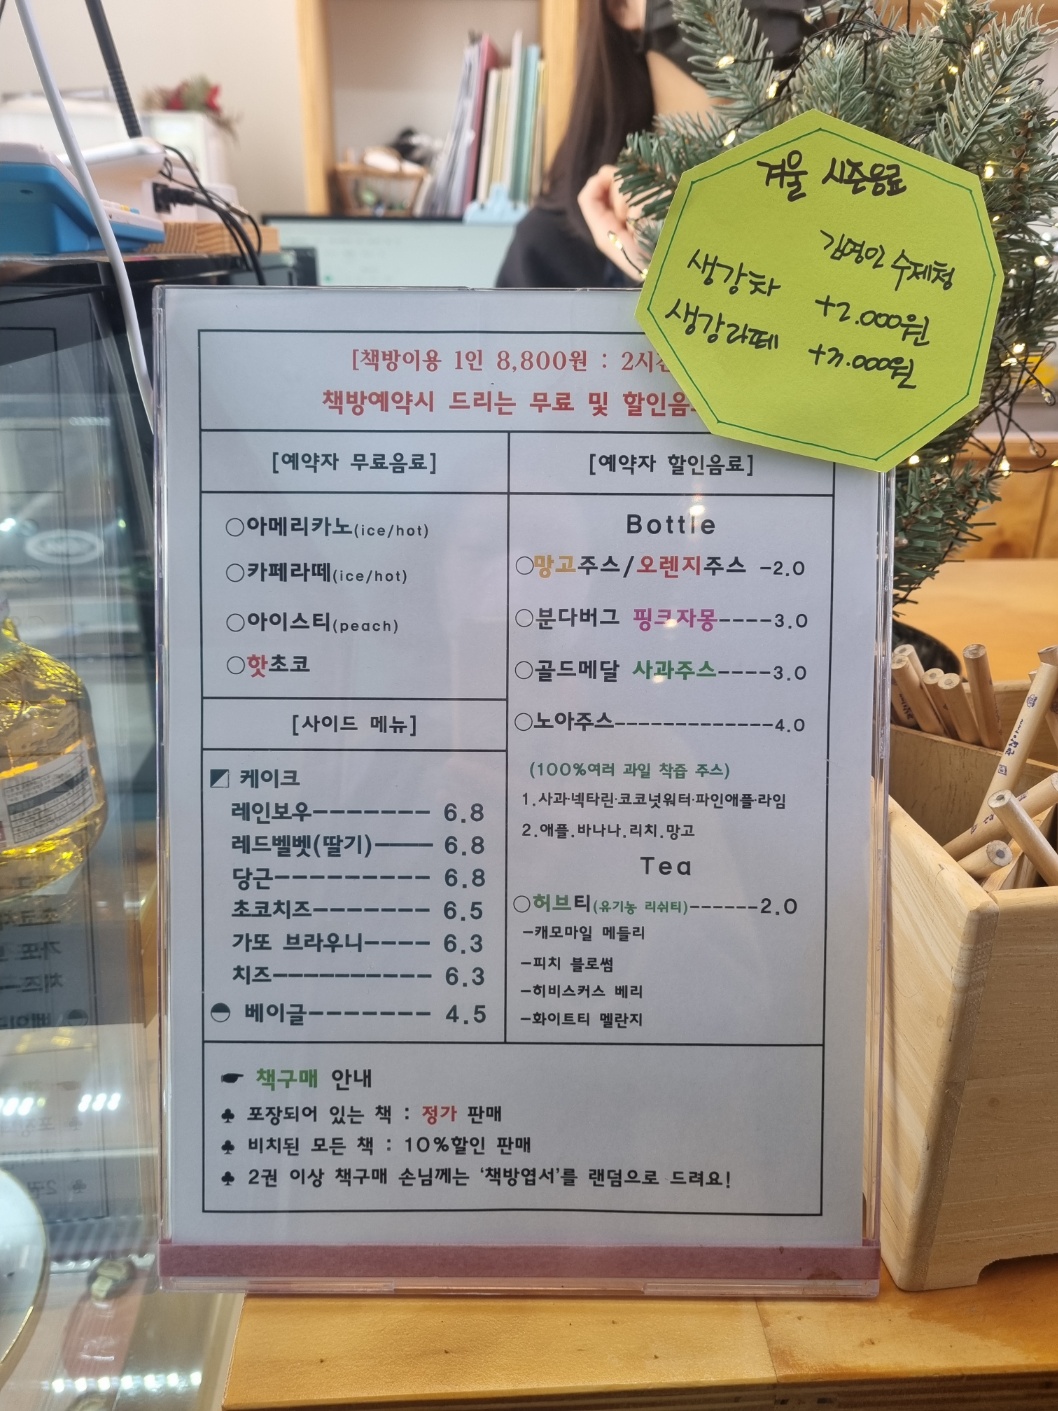 겨울 시즌음료
김영인 수제청
생강차 +2.000원
생강라떼 +3.000원
[책방이용 1인 8,800원 : 2시간
책방예약시 드리는 무료 및 할인음
[예약자 무료음료]
○아메리카노(ice/hot)
○카페라떼(ice/hot)
○아이스티(peach)
○핫초코
[사이드 메뉴]
케이크
레인보우-------- 6.8
레드벨벳(딸기)---- 6.8
당근---------- 6.8
초코치즈-------- 6.5
가또 브라우니---- 6.3
치즈---------- 6.3
베이글------- 4.5
[예약자 할인음료]
Bottle
○망고주스/오렌지주스 -2.0
○분다버그 핑크자몽----3.0
○골드메달 사과주스----3.0
○노아주스-------------4.0
(100%여러 과일 착즙 주스)
1.사과·넥타린·코코넛워터·파인애플·라임
2.애플.바나나.리치.망고
Tea
○허브티(유기농 리쉬티)------2.0
-캐모마일 메들리
-피치 블로썸
-히비스커스 베리
-화이트티 멜란지
☛ 책구매 안내
♣ 포장되어 있는 책 : 정가 판매
♣ 비치된 모든 책 : 10%할인 판매
♣ 2권 이상 책구매 손님께는 '책방엽서'를 랜덤으로 드려요!